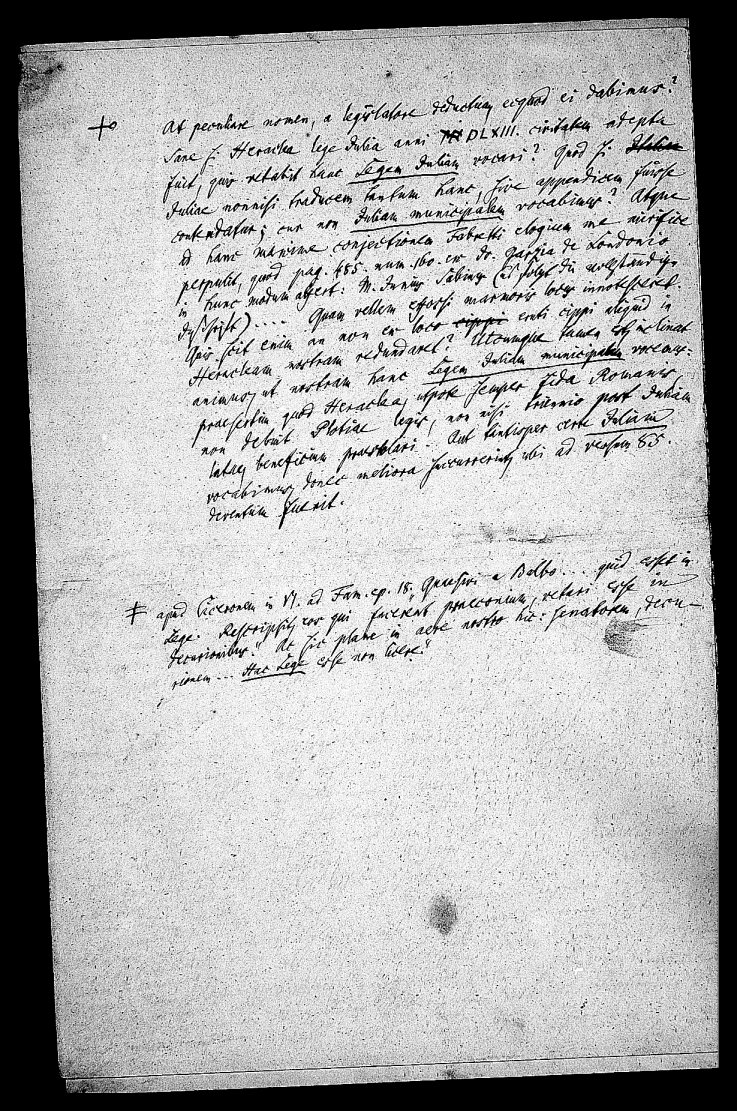 At peculiare nomen, a legislatore deductum, ecquod ei dabimus?
Sane si Heraclea lege Julia anni DLXIII. civitatem adepta
fuit, quis vetabit hanc Legem Juliam vocari? Quod si Italiae
Juliae nonnisi traducem tantum hanc, sive appendicem fuisse
contendatur; cur non Juliam municipalem vocabimus? Atque
ad hanc maxime conjectionem Fabretti elogium me mirifice
perpulit, quod pag. 485. num. 160. ex Do. Garzia de Londonio
in hunc modum affert: M. Junius Sabinus (es folgt die vollständige
Aufschrift) .... Quam vellem effossi marmoris locus innotesceret.
Quis scit enim an non ex loco cippi eruti cippi aliquid in
Heracleam nostram redundaret? Utcunque tamen est, inclinat
animus, ut nostram hanc Legem Juliam municipalem vocemus:
praesertim quod Heraclea, utpote semper fida Romanis,
non debuit Plotiae legis, non nisi triennio post Juliam
latae, beneficium praestolari. Aut tantisper certe Juliam
vocabimus, donec meliora succurrerint, ubi ad versum 85.
deventum fuerit.
apud Ciceronem in VI. ad Fam. ep. 18., Quaesivi a Balbo ... quid esset in
Lege. Rescripsit, eos qui facerent praeconium, vetari esse in
decurionibus." At sic plane in aere nostro hic: senatorem, decu-
rionem ... Hac Lege esse non licere."